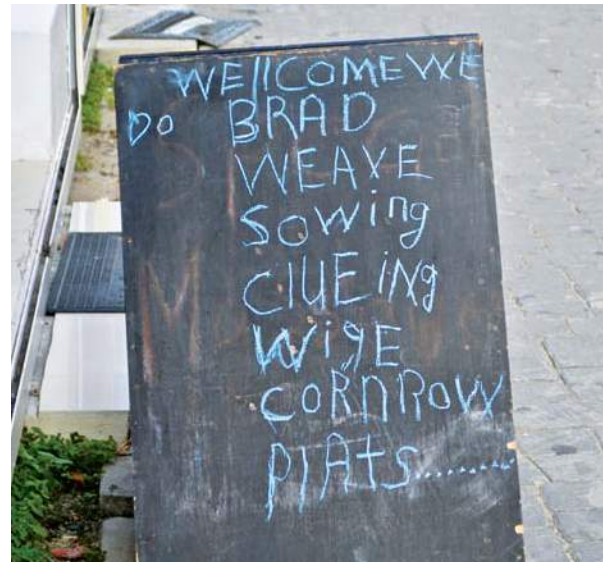 WEllCOME WE
Do BRAD
WEAVE
SOWing
CIUEiNg
WigE
CORnROW
PlAts.........